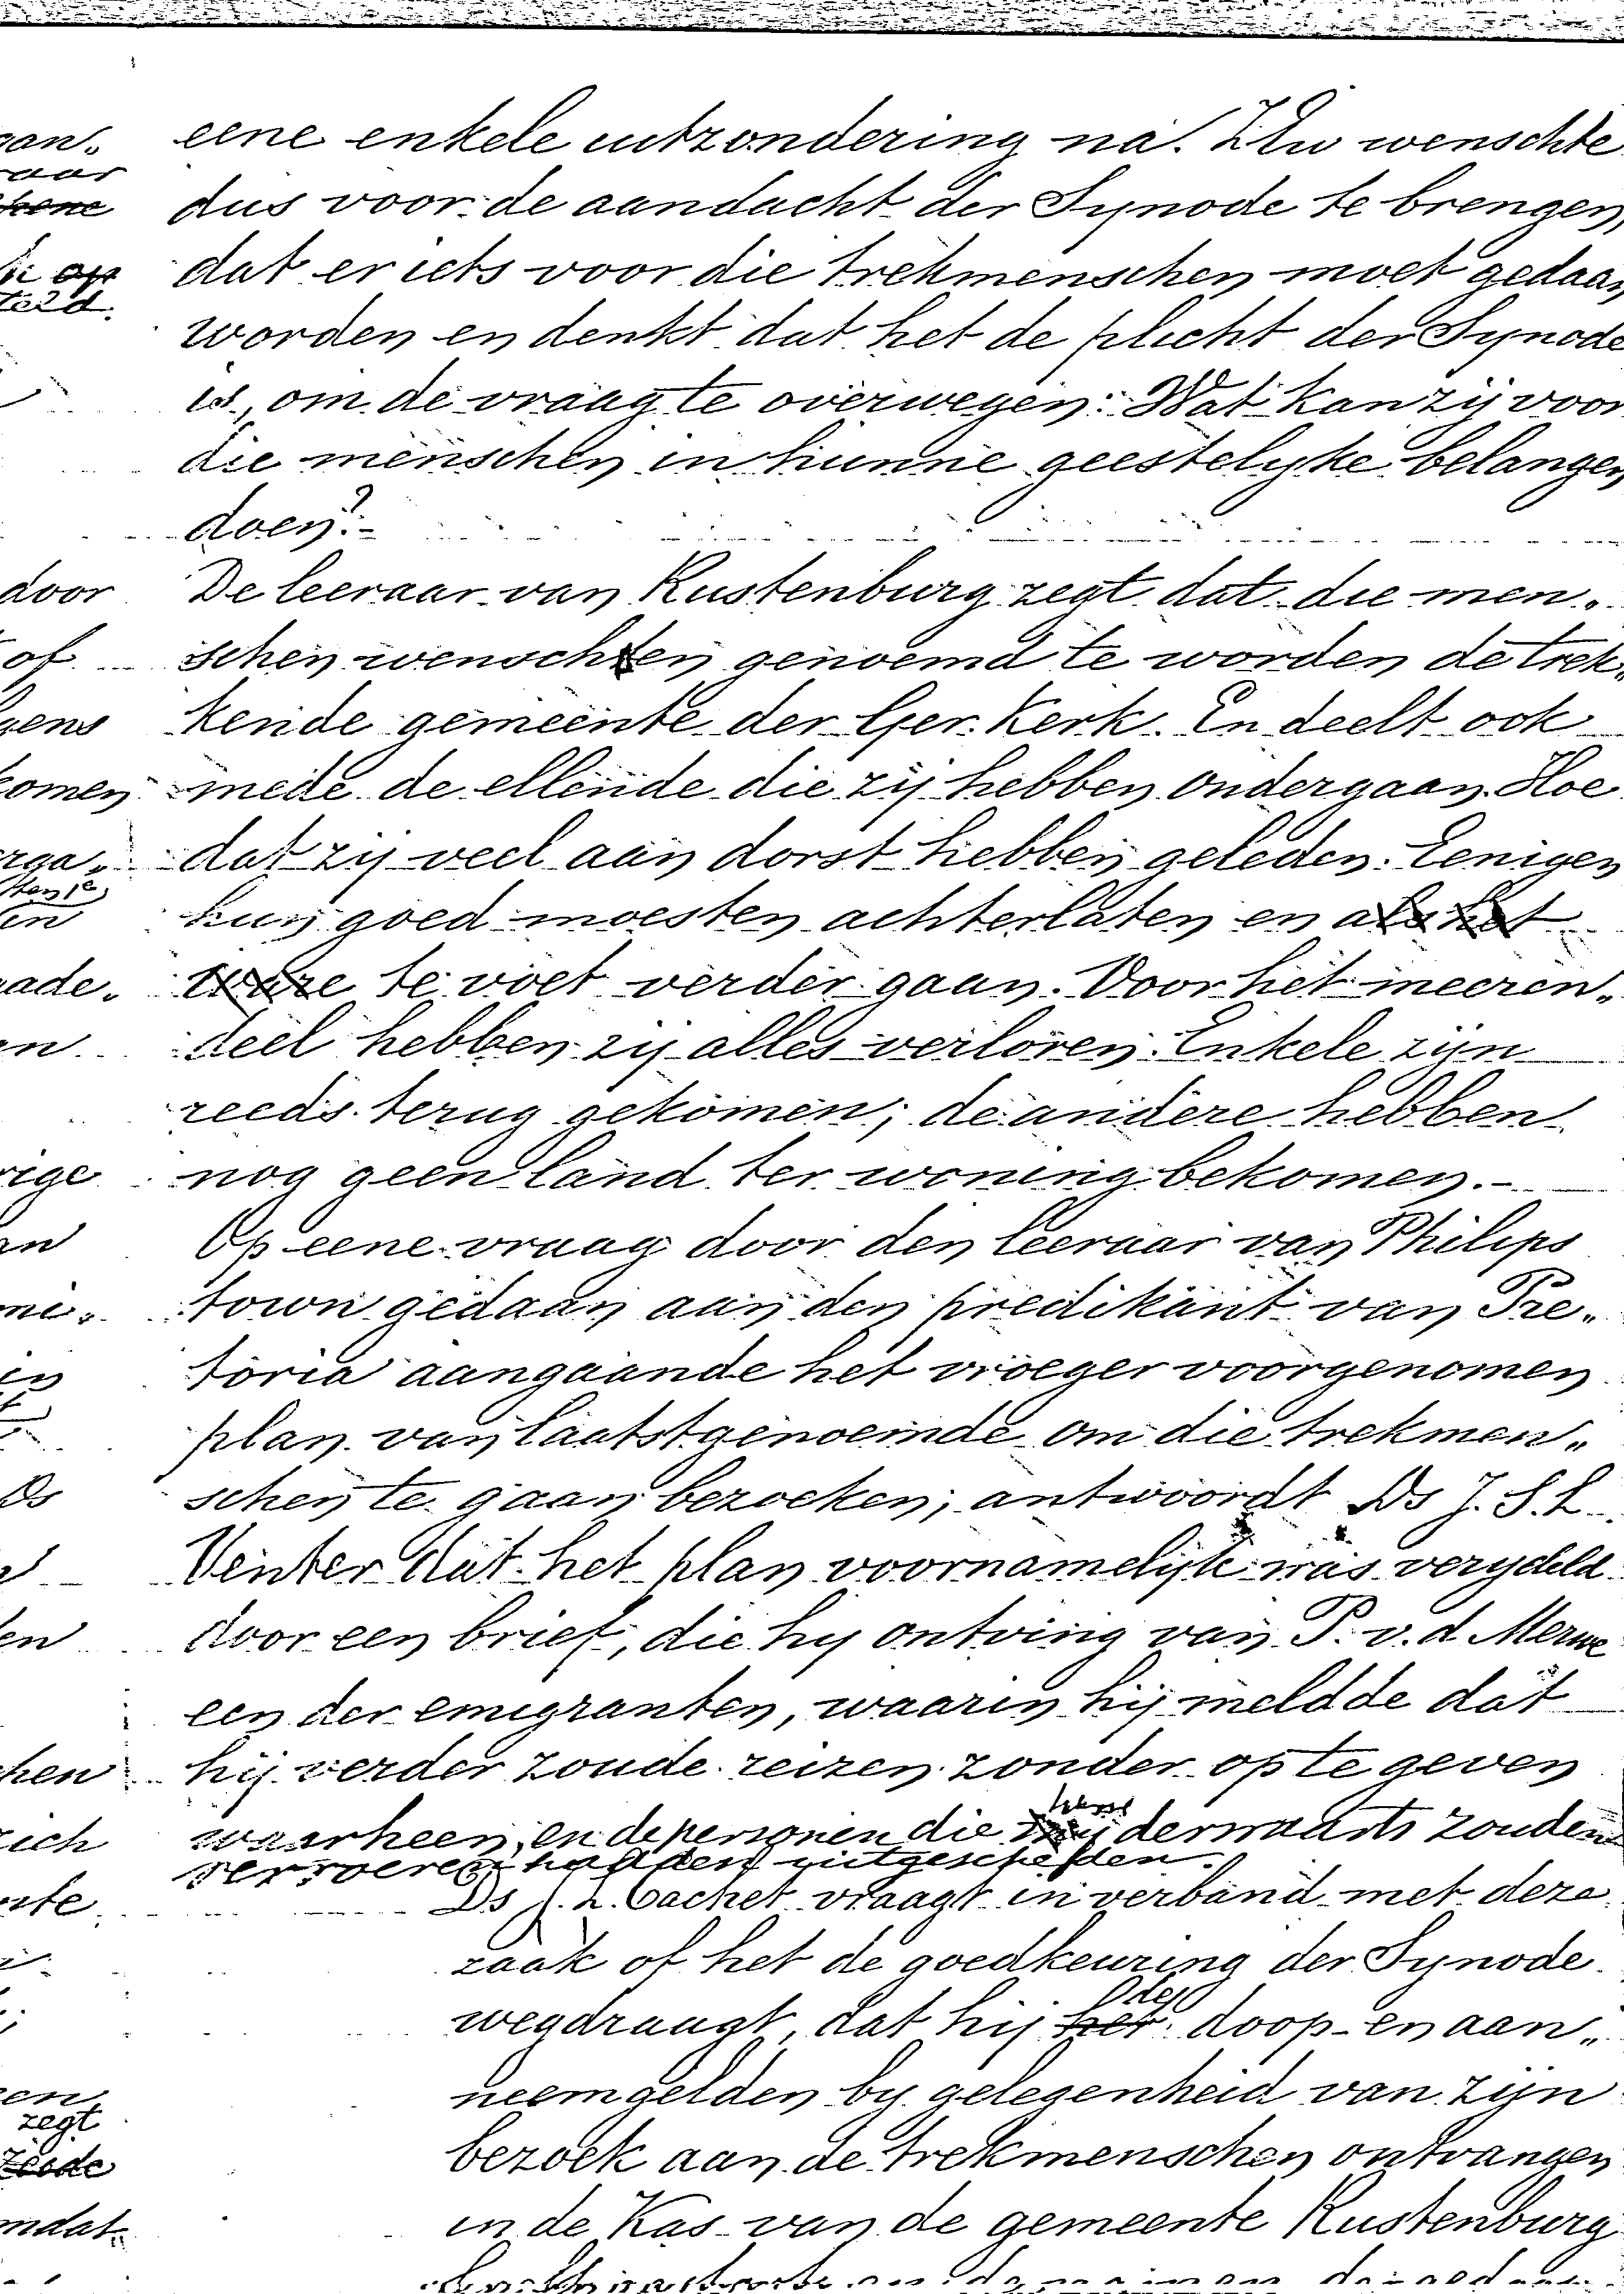 eene enkele uitzondering na. ZEw wenschte
dus voor de aandacht der Synode te brengen,
dat er iets voor die trekmenschen moet gedaan
worden en denkt dat het de plicht der Synode
is, om de vraag te overwegen: Wat kan zij voor
die menschen in hunne geestelyke belangen
doen?-
De leeraar van Rustenburg zegt dat die men„
schen wenschten genoemd te worden de trek„
kende gemeente der Ger. Kerk. En deelt ook
mede de ellende die zij hebben ondergaan. Hoe
dat zij veel aan dorst hebben geleden. Eenigen
hun goed moesten achterlaten en als het
ware te voet verder gaan. Voor het meeren„
deel hebben zij alles verloren. Enkele zijn
reeds terug gekomen; de andere hebben
nog geen land ter woning bekomen.-
Op eene vraag door den leeraar van Philips
town gedaan aan den predikant van Pre„
toria aangaande het vroeger voorgenomen
plan van laatstgenoemde om die trekmen„
schen te gaan bezoeken; antwoordt Ds J. S. L.
Venter dat het plan voornamelijk was verydeld
door een brief, die hy ontving van P. v. d. Merwe
een der emigranten, waarin hij meldde dat
hij verder zoude reizen zonder op te geven
waarheen, en de personen die derwaarts zouden
vervoeren hadden uitgescheiden.
Ds J. L. Cachet vraagt in verband met deze
zaak of het de goedkeuring der Synode
wegdraagt, dat hij het de doop- en aan„
neemgelden by gelegenheid van zijn
bezoek aan de trekmenschen ontvangen
in de Kas van de gemeente Rustenburg
door
of
gens
komen
rige
chen
zich
zegt